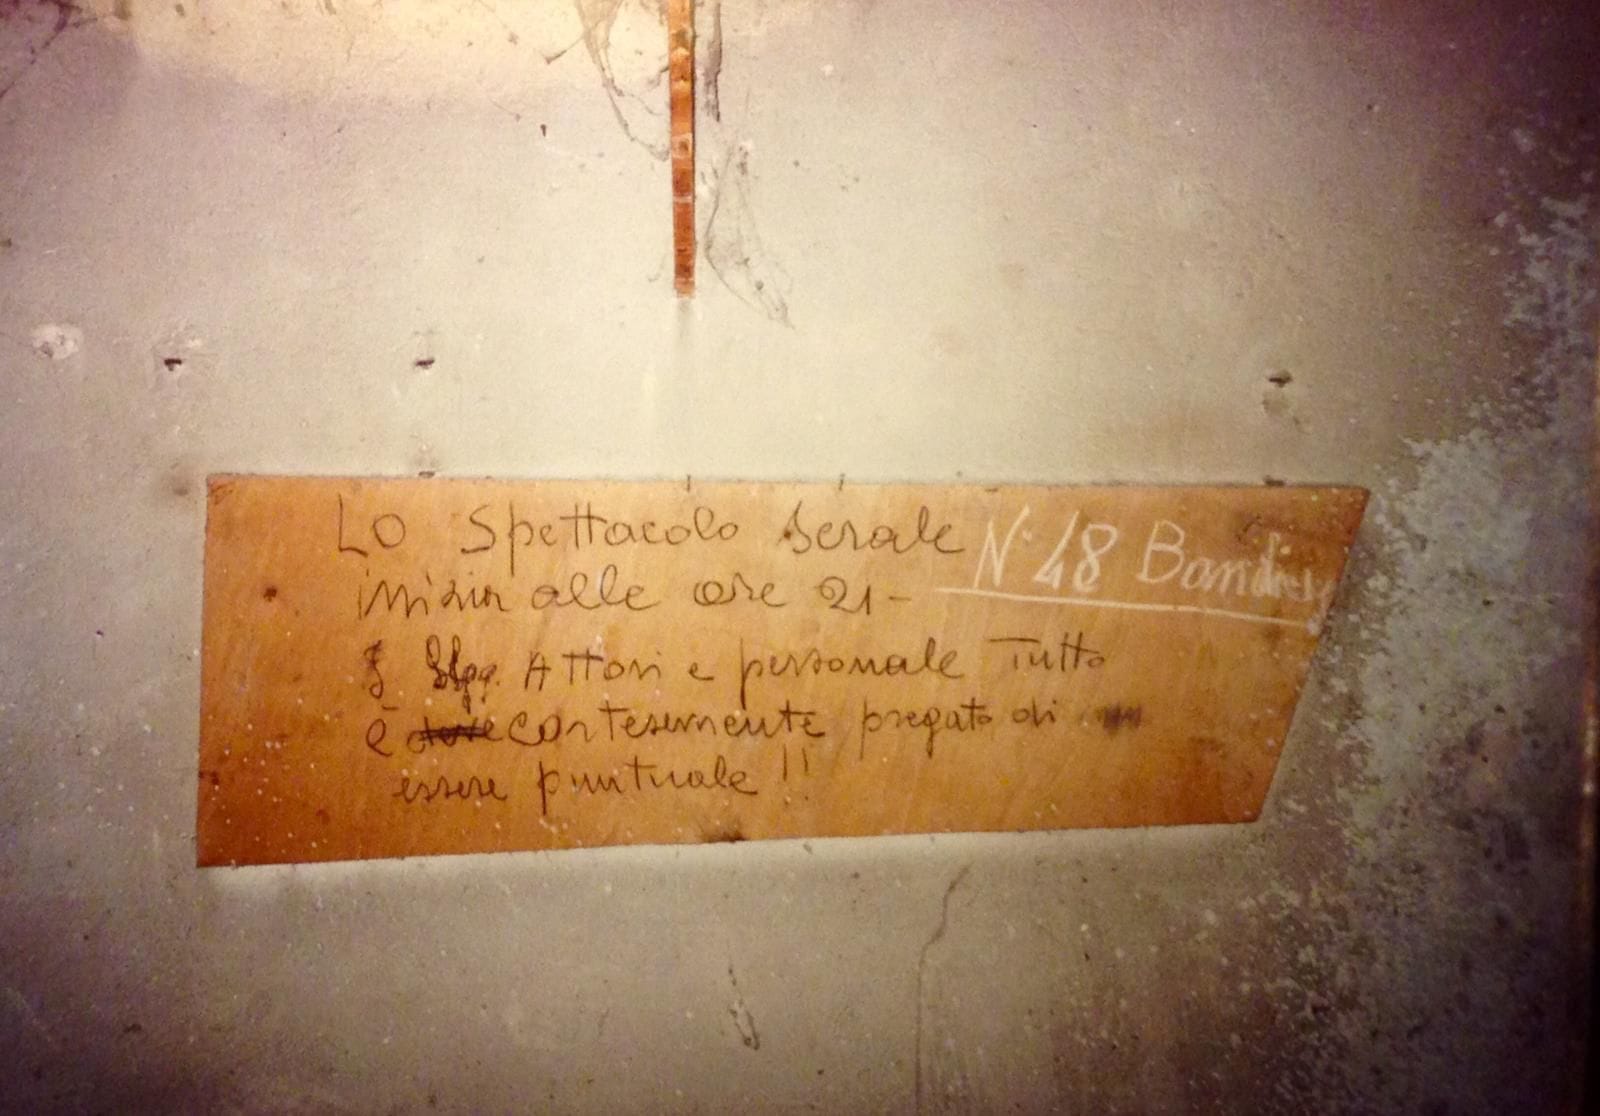 Lo Spettacolo serale
inizia alle ore 21-
N. 48 Bandiere
I Sigg. Attori e personale Tutto
è cortesemente pregato di
essere puntuale !!